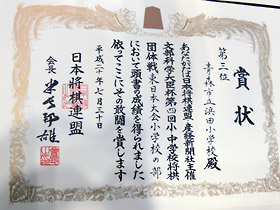 賞状
第三位
青森市立浜田小学校殿
あなたがたは日本将棋連盟、産経新聞社主催
文部科学大臣杯第四回小・中学校将棋
団体戦東日本大会小学校の部
において頭書の成績を得られました
依ってここにその放闘を賞します
平成二十年七月三十日
日本将棋連盟
会長